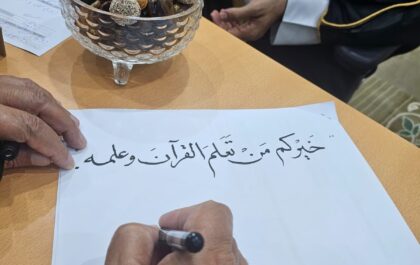 خَيْركم مَنْ تَعَلمَ القُرآنَ وعلمه.